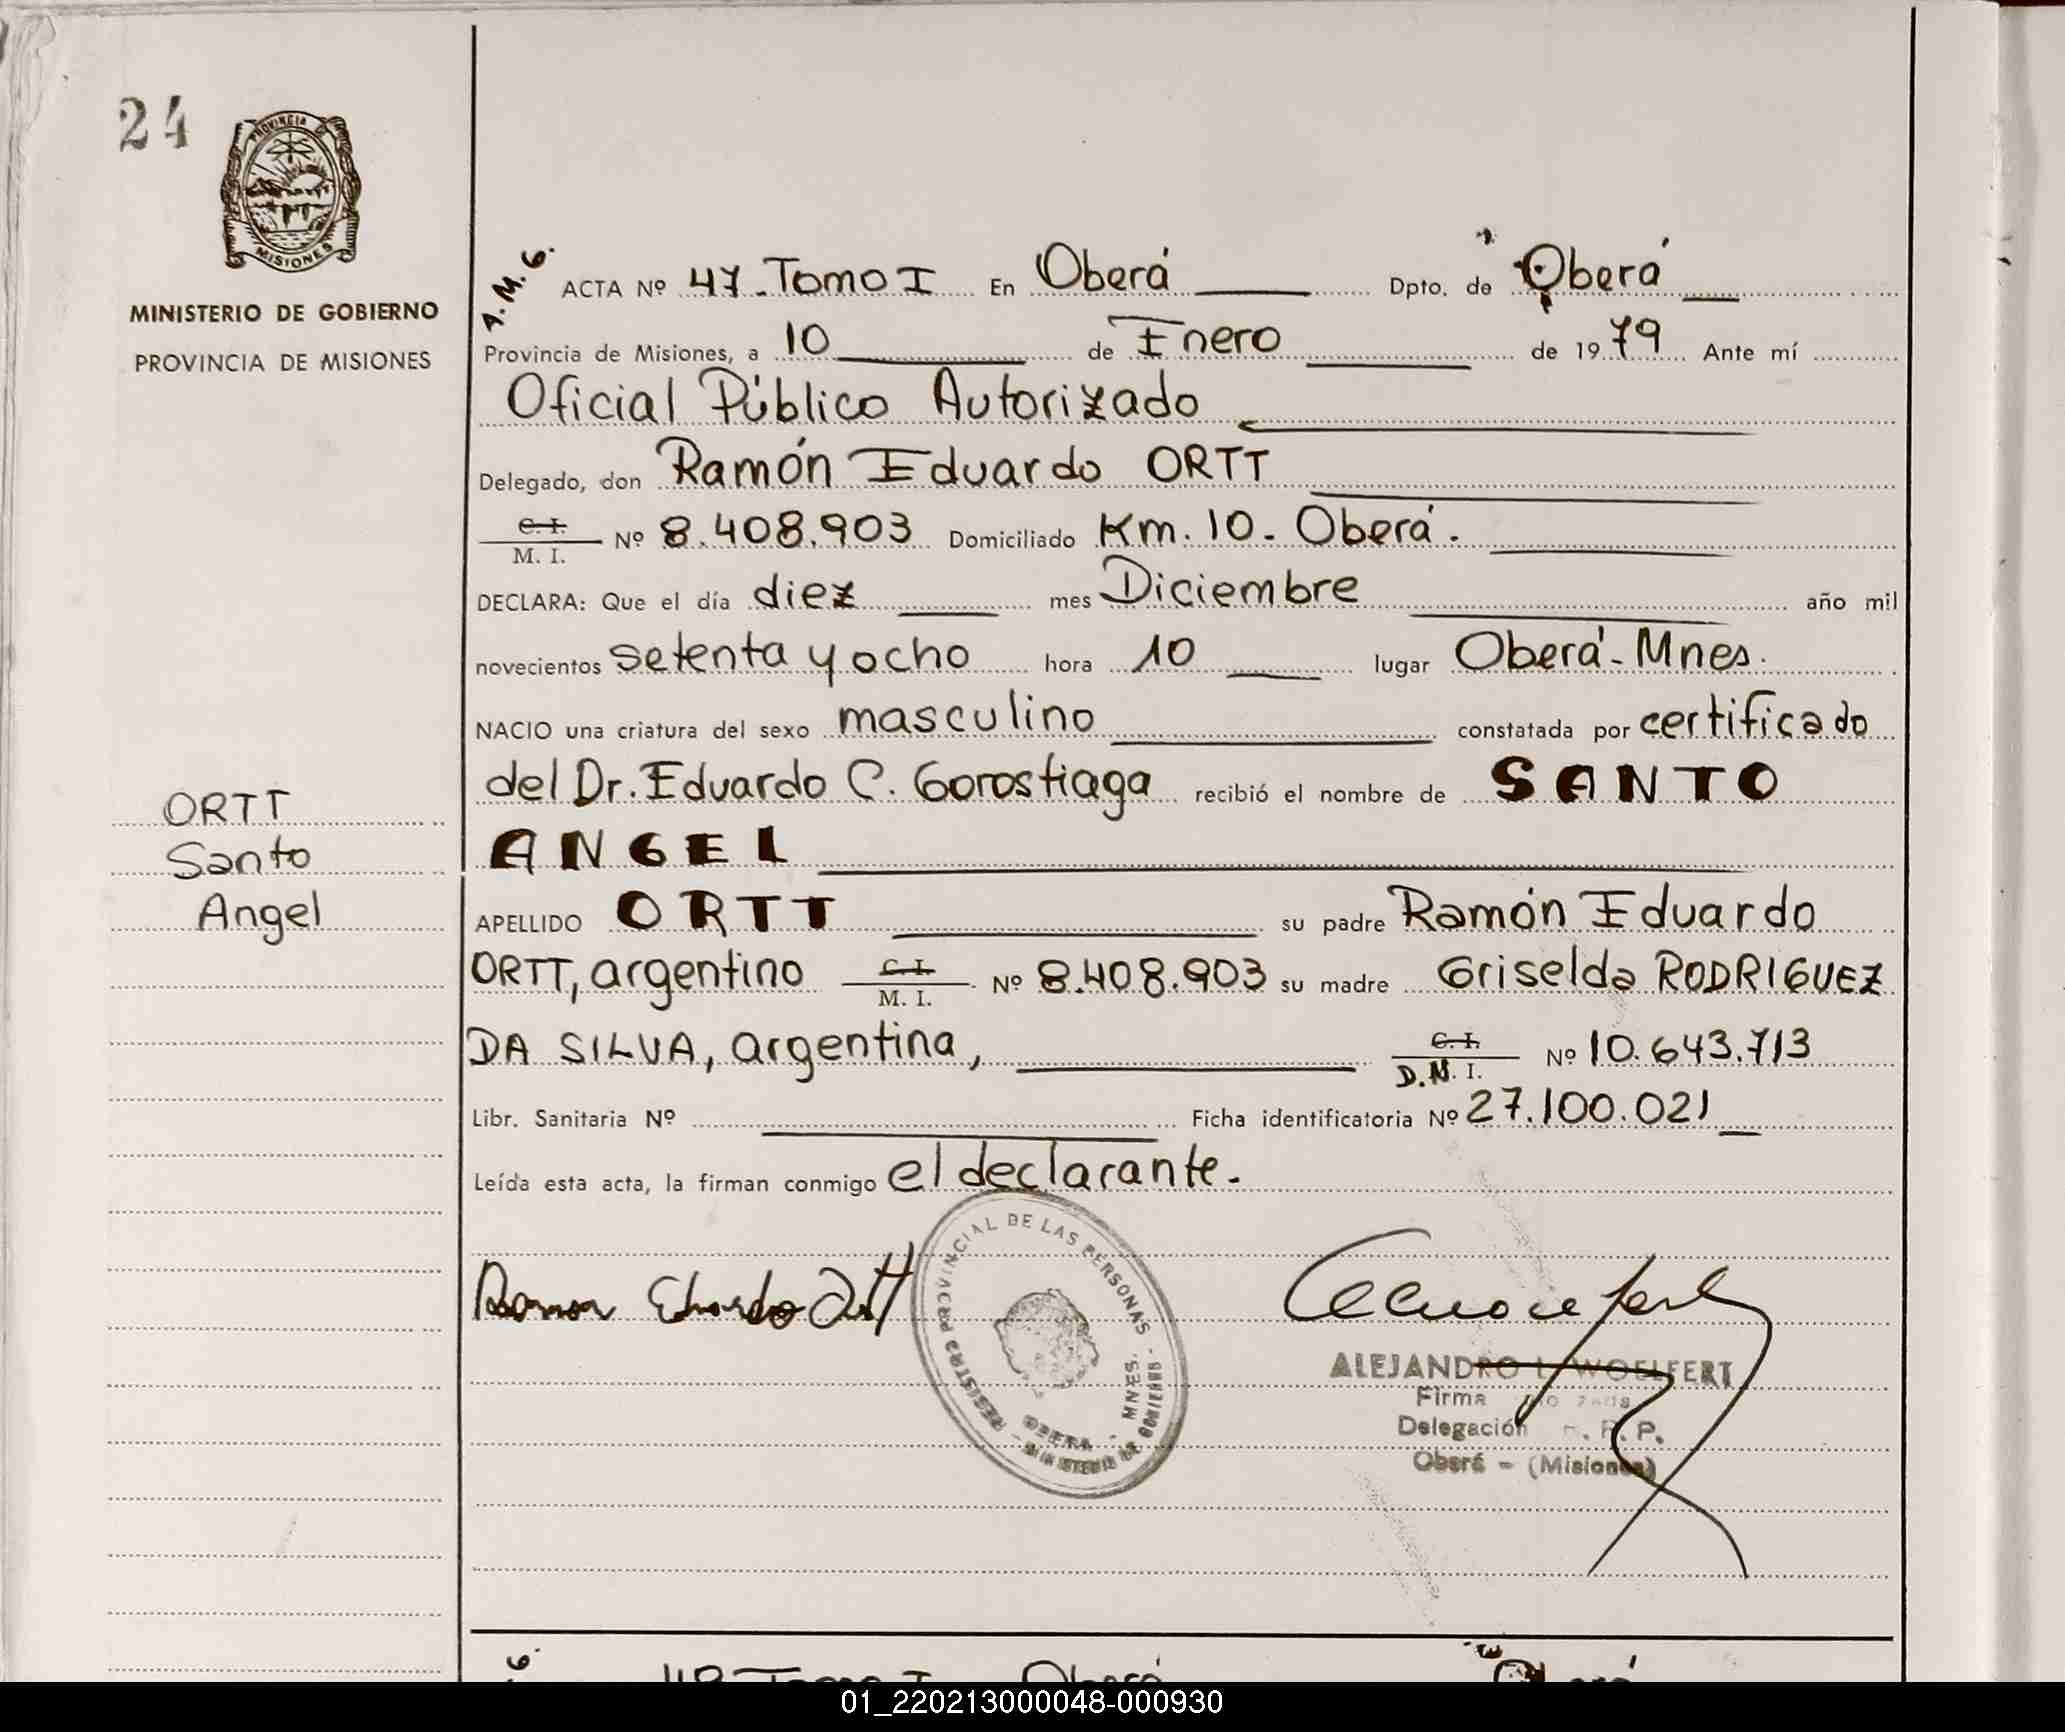 24
PROVINCIA DE
MISIONES
MINISTERIO DE GOBIERNO
PROVINCIA DE MISIONES
ORTT
Santo
Angel
A.M.G. ACTA Nº 47. Tomo I En Oberá Dpto. de Oberá
Provincia de Misiones, a 10 de Enero de 1979 Ante mí
Oficial Público Autorizado
Delegado, don Ramón Eduardo ORTT
C. I.
M. I. Nº 8.408.903 Domiciliado Km. 10. Oberá.
DECLARA: Que el día diez mes Diciembre año mil
novecientos setenta y ocho hora 10 lugar Oberá-Mnes.
NACIO una criatura del sexo masculino constatada por certificado
del Dr. Eduardo C. Gorostiaga recibió el nombre de SANTO
ANGEL
APELLIDO ORTT su padre Ramón Eduardo
ORTT, argentino C. I. M. I. Nº 8.408.903 su madre Griselda RODRIGUEZ
DA SILVA, argentina, C. I. D.N. I. Nº 10.643.713
Libr. Sanitaria Nº Ficha identificatoria Nº 27.100.021
Leída esta acta, la firman conmigo el declarante.
Ramon Eduardo Ortt
REGISTRO PROVINCIAL DE LAS PERSONAS
OBERA - MNES.
MINISTERIO DE GOBIERNO
ALEJANDRO L. WOELFERT
Firma
Delegación R. P. P.
Oberá - (Misiones)
48 Tomo I Oberá Oberá
01_220213000048-000930